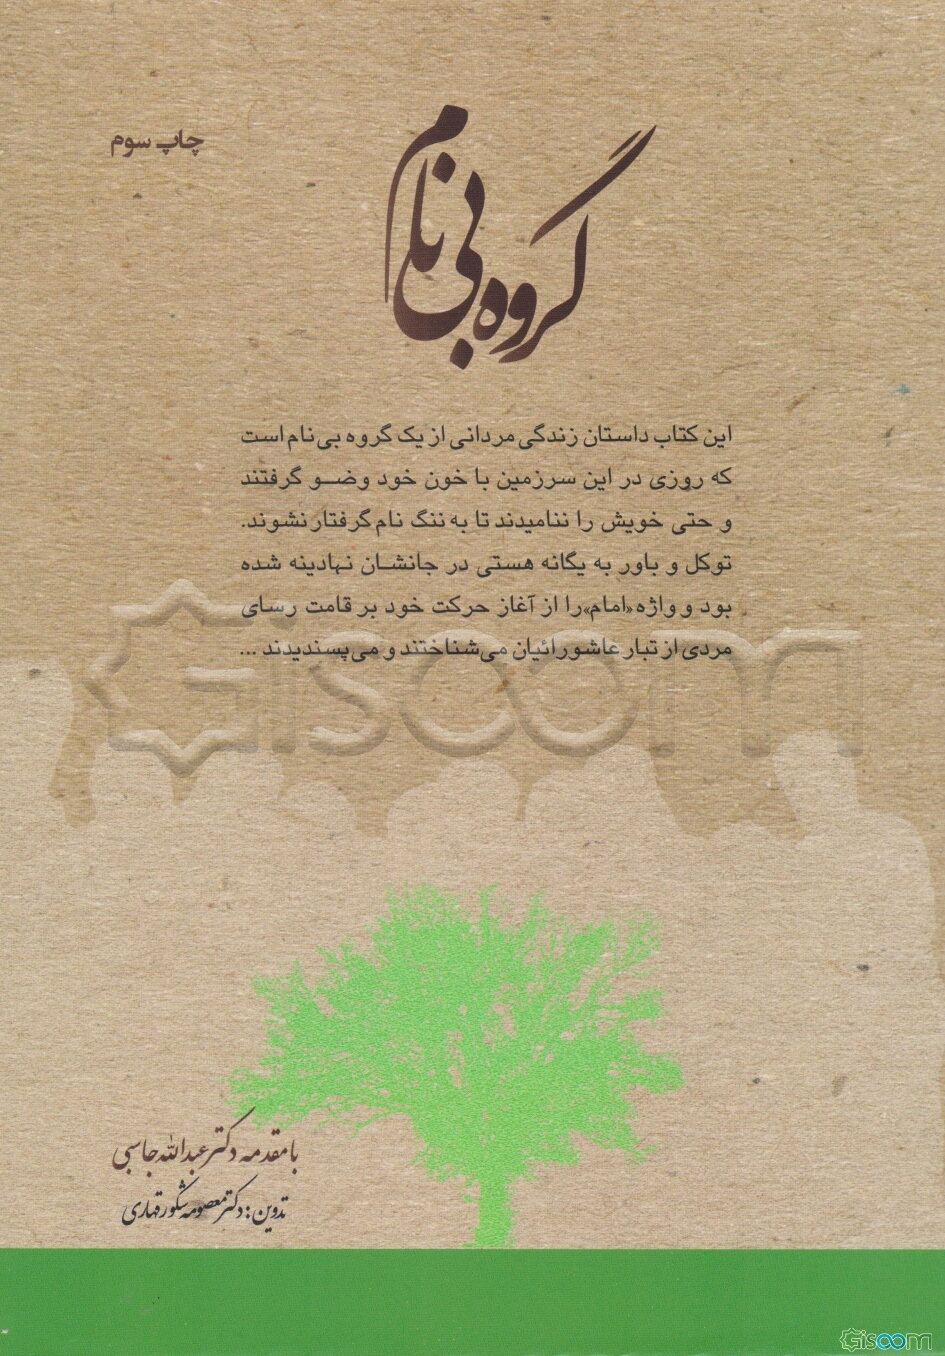 چاپ سوم
گروه بی‌نام
این کتاب داستان زندگی مردانی از یک گروه بی‌نام است
که روزی در این سرزمین با خون خود وضو گرفتند
و حتی خویش را ننامیدند تا به ننگ نام گرفتار نشوند.
توکل و باور به یگانه هستی در جانشان نهادینه شده
بود و واژه «امام» را از آغاز حرکت خود بر قامت رسای
مردی از تبار عاشورائیان می‌شناختند و می‌پسندیدند ...
Gisoom
با مقدمه دکتر عبدالله جاسبی
تدوین: دکتر معصومه شکور قهاری
Gisoom